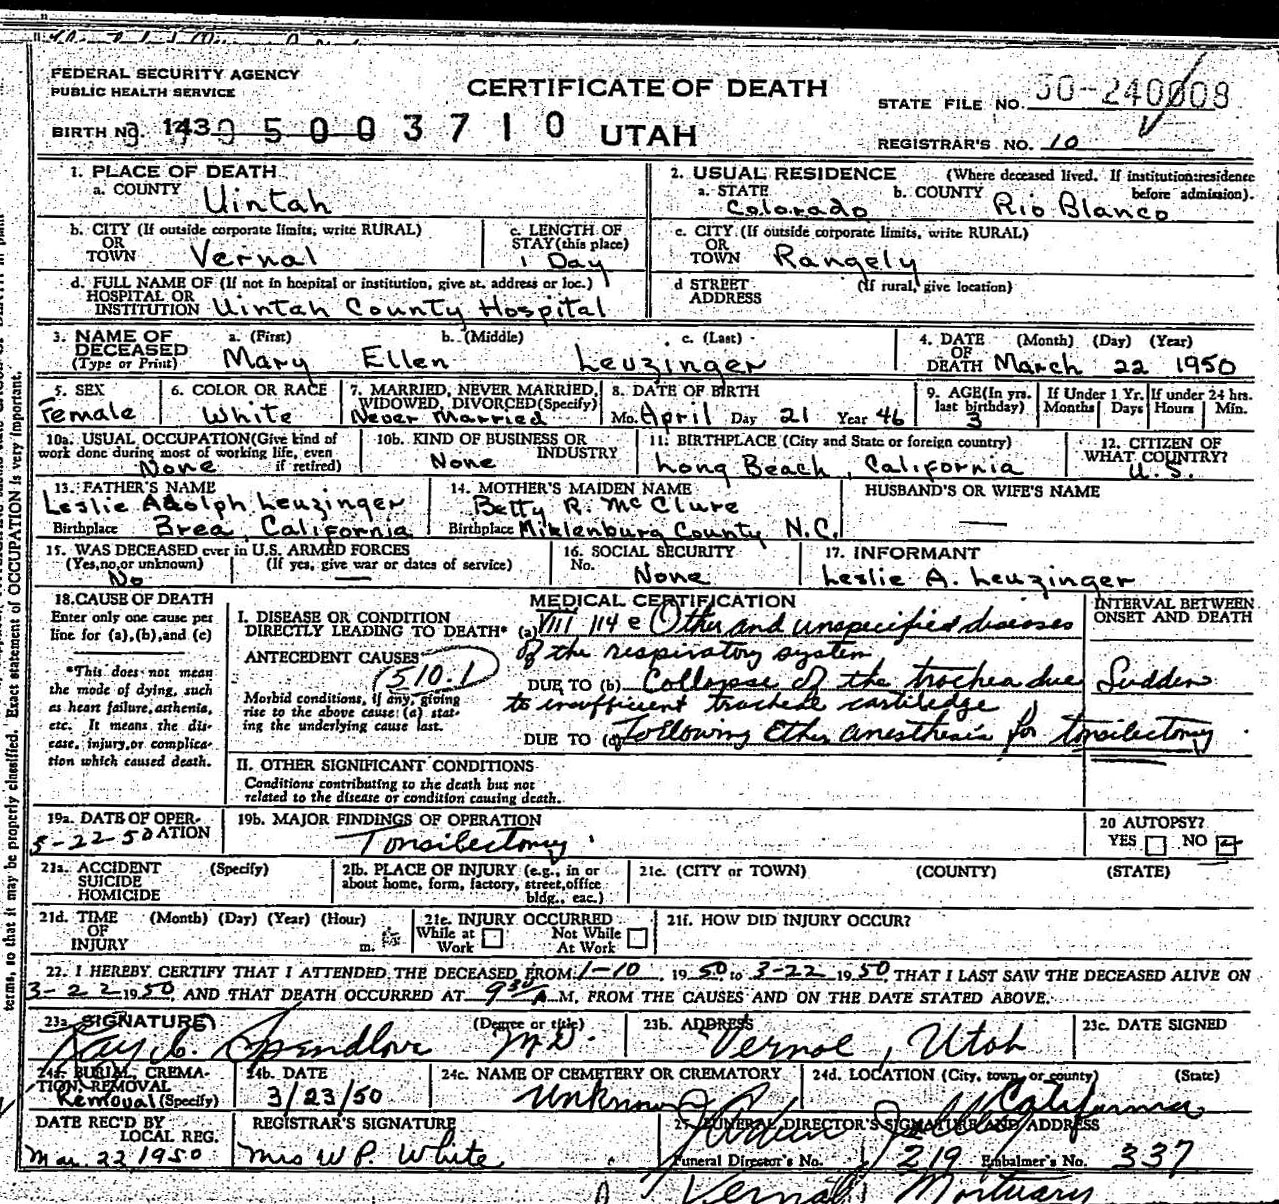 FEDERAL SECURITY AGENCY
PUBLIC HEALTH SERVICE
CERTIFICATE OF DEATH
STATE FILE NO. 50-240008
BIRTH NO. 143 0 5 0 0 3 7 1 0 UTAH
REGISTRAR'S NO. 10
1. PLACE OF DEATH
a. COUNTY Uintah
2. USUAL RESIDENCE (Where deceased lived. If institution: residence before admission).
a. STATE Colorado b. COUNTY Rio Blanco
b. CITY (If outside corporate limits, write RURAL) OR TOWN Vernal
c. LENGTH OF STAY (this place) 1 Day
c. CITY (If outside corporate limits, write RURAL) OR TOWN Rangely
d. FULL NAME OF (If not in hospital or institution, give st. address or loc.) HOSPITAL OR INSTITUTION Uintah County Hospital
d STREET ADDRESS (If rural, give location)
3. NAME OF DECEASED (Type or Print) a. (First) Mary b. (Middle) Ellen c. (Last) Leuzinger
4. DATE OF DEATH (Month) (Day) (Year) March 22 1950
5. SEX Female
6. COLOR OR RACE White
7. MARRIED, NEVER MARRIED, WIDOWED, DIVORCED (Specify) Never Married
8. DATE OF BIRTH Mo. April Day 21 Year 46
9. AGE (In yrs. last birthday) 3
If Under 1 Yr. Months Days
If under 24 hrs. Hours Min.
10a. USUAL OCCUPATION (Give kind of work done during most of working life, even if retired) None
10b. KIND OF BUSINESS OR INDUSTRY None
11. BIRTHPLACE (City and State or foreign country) Long Beach, California
12. CITIZEN OF WHAT COUNTRY? U.S.
13. FATHER'S NAME Leslie Adolph Leuzinger
Birthplace Brea, California
14. MOTHER'S MAIDEN NAME Betty R. McClure
Birthplace Miklenburg County N.C.
HUSBAND'S OR WIFE'S NAME —
15. WAS DECEASED ever in U.S. ARMED FORCES (Yes, no, or unknown) No (If yes, give war or dates of service) —
16. SOCIAL SECURITY No. None
17. INFORMANT Leslie A. Leuzinger
18. CAUSE OF DEATH
Enter only one cause per line for (a), (b), and (c)
*This does not mean the mode of dying, such as heart failure, asthenia, etc. It means the disease, injury, or complication which caused death.
MEDICAL CERTIFICATION
INTERVAL BETWEEN ONSET AND DEATH
I. DISEASE OR CONDITION DIRECTLY LEADING TO DEATH* (a) VIII 114 e Other and unspecified diseases
of the respiratory system
ANTECEDENT CAUSES 510.1
Morbid conditions, if any, giving rise to the above cause (a) stating the underlying cause last.
DUE TO (b) Collapse of the trachea due Sudden
to insufficient tracheal cartiledge
DUE TO (c) Following Ether anesthesia for tonsilectomy
II. OTHER SIGNIFICANT CONDITIONS
Conditions contributing to the death but not related to the disease or condition causing death.
19a. DATE OF OPERATION 3-22-50
19b. MAJOR FINDINGS OF OPERATION
Tonsilectomy
20 AUTOPSY?
YES NO
21a. ACCIDENT SUICIDE HOMICIDE (Specify)
21b. PLACE OF INJURY (e.g., in or about home, form, factory, street, office bldg., eac.)
21c. (CITY or TOWN) (COUNTY) (STATE)
21d. TIME OF INJURY (Month) (Day) (Year) (Hour) m.
21e. INJURY OCCURRED While at Work Not While At Work
21f. HOW DID INJURY OCCUR?
22. I HEREBY CERTIFY THAT I ATTENDED THE DECEASED FROM 1-10, 1950 to 3-22 1950, THAT I LAST SAW THE DECEASED ALIVE ON
3-22 1950, AND THAT DEATH OCCURRED AT 9 30 A M, FROM THE CAUSES AND ON THE DATE STATED ABOVE.
23a. SIGNATURE Ray C. Spendlove (Degree or title) M.D.
23b. ADDRESS Vernal, Utah
23c. DATE SIGNED
24a. BURIAL, CREMATION, REMOVAL (Specify) Removal
24b. DATE 3/23/50
24c. NAME OF CEMETERY OR CREMATORY Unknown
24d. LOCATION (City, town, or county) (State) California
DATE REC'D BY LOCAL REG. Mar. 22, 1950
REGISTRAR'S SIGNATURE Mrs W P. White
FUNERAL DIRECTOR'S SIGNATURE AND ADDRESS
Funeral Director's No. 219 Embalmer's No. 337
Vernal Mortuary
terms, so that it may be properly classified. Exact statement of OCCUPATION is very important.